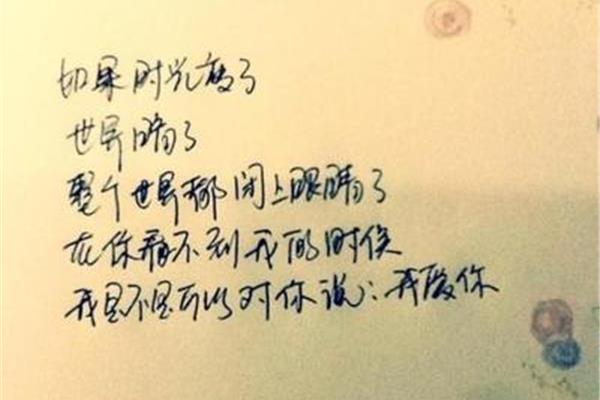 如果时光了
世界暗了
整个世界都闭上眼睛了
在你不到我的时候
我是不是可以对你说:我爱你